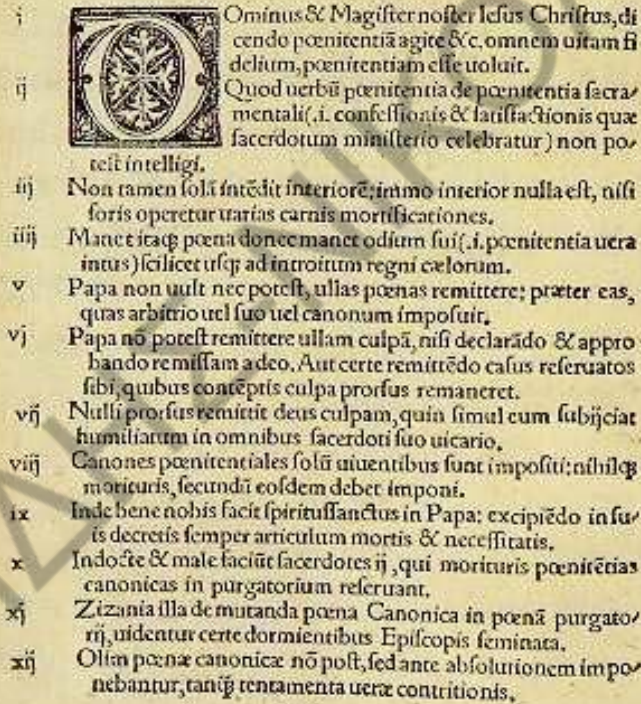 i DOminus & Magiſter noſter Ieſus Chriſtus, di
cendo pœnitentiā agite &c. omnem uitam fi
delium, pœnitentiam eſſe uoluit.
ij Quod uerbū pœnitentia de pœnitentia ſacra⸗
mentali(.i. confeſſionis & ſatiſfactionis quæ
ſacerdotum miniſterio celebratur) non po⸗
teſt intelligi.
iij Non tamen ſolā intēdit interiorē: immo interior nulla eſt, niſi
foris operetur uarias carnis mortificationes.
iiij Manet itaqꝫ pœna donec manet odium ſui(.i. pœnitentia uera
intus) ſcilicet uſqꝫ ad introitum regni cælorum.
v Papa non uult nec poteſt, ullas pœnas remittere: præter eas,
quas arbitrio uel ſuo uel canonum impoſuit.
vj Papa nō poteſt remittere ullam culpā, niſi declarādo & appro
bando remiſſam a deo. Aut certe remittēdo caſus reſeruatos
ſibi, quibus contēptis culpa prorſus remaneret.
vij Nulli prorſus remittit deus culpam, quin ſimul eum ſubijciat
humiliatum in omnibus ſacerdoti ſuo uicario.
viij Canones pœnitentiales ſolū uiuentibus ſunt impoſiti: nihilqꝫ
morituris, ſecundū eoſdem debet imponi.
ix Inde bene nobis facit ſpirituſſanctus in Papa: excipiēdo in ſu⸗
is decretis ſemper articulum mortis & neceſſitatis.
x Indocte & male faciūt ſacerdotes ij, qui morituris pœnitētias
canonicas in purgatorium reſeruant.
xj Zizania illa de mutanda pœna Canonica in pœnā purgato⸗
rij, uidentur certe dormientibus Epiſcopis ſeminata.
xij Olim pœnæ canonicæ nō poſt, ſed ante abſolutionem impo⸗
nebantur, tanqꝫ tentamenta ueræ contritionis.